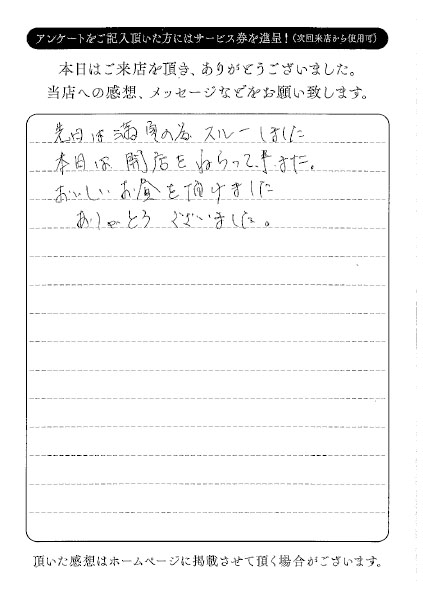 アンケートをご記入頂いた方にはサービス券を進呈!(次回来店から使用可)
本日はご来店を頂き、ありがとうございました。
当店への感想、メッセージなどをお願い致します。
先日は満員の為スルーしました
本日は開店をねらって来ました。
おいしいお食を頂けました
ありがとうございました。
頂いた感想はホームページに掲載させて頂く場合がございます。